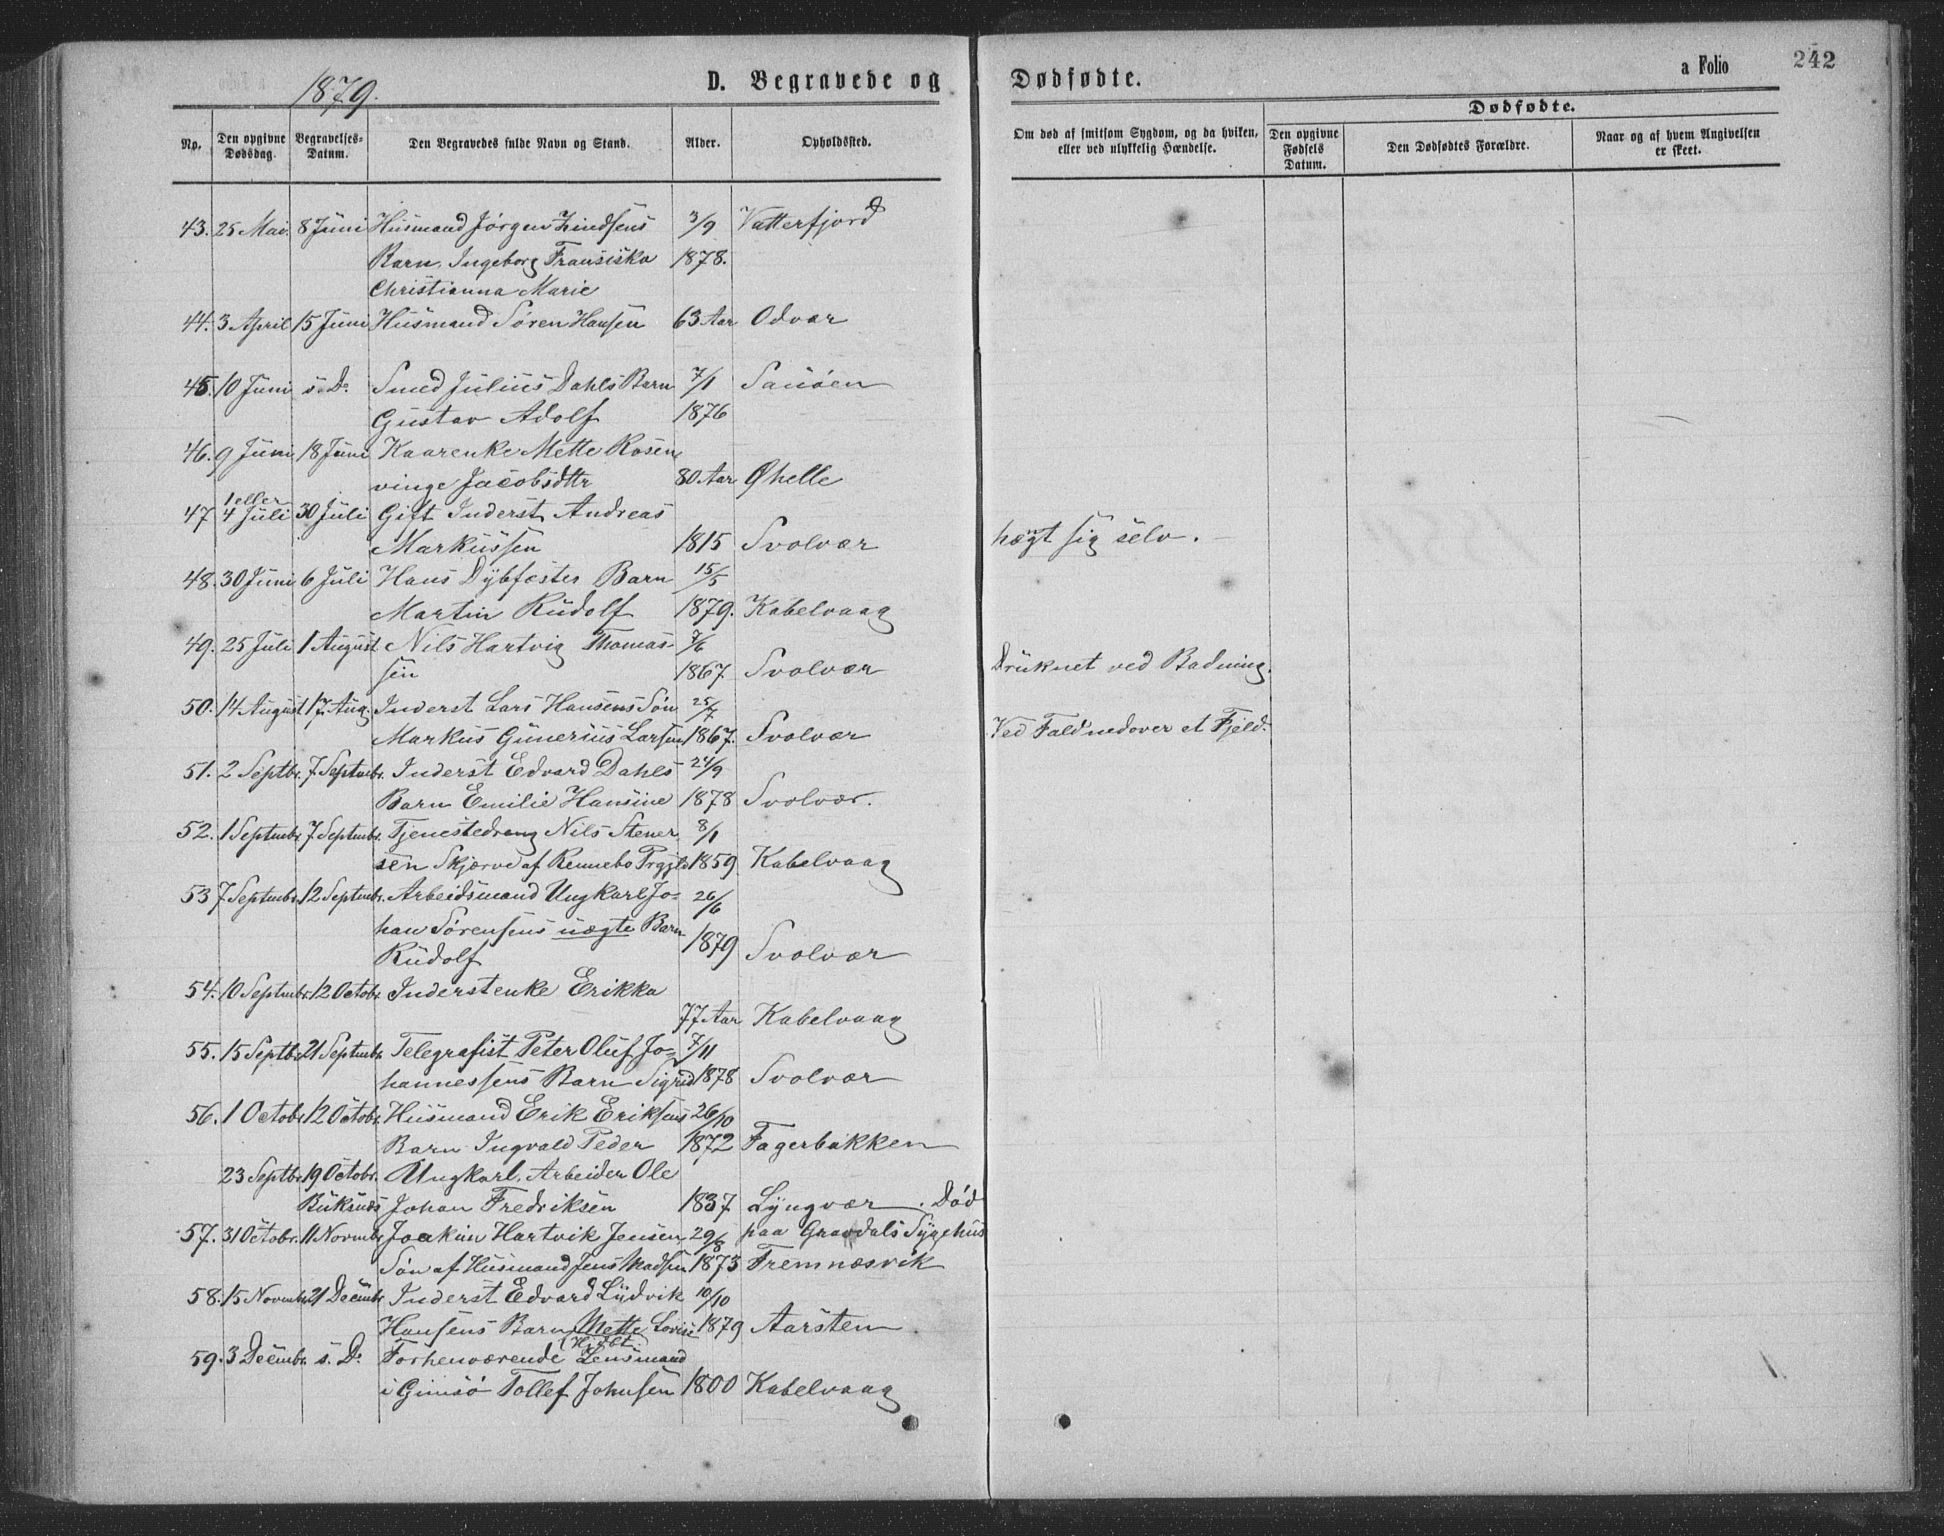 1879.
D. Begravede og Dødfødte.
a Folio 242
No.
Den opgivne Dødsdag.
Begravelses-Datum.
Den Begravedes fulde Navn og Stand.
Alder.
Opholdssted.
Om død af smitsom Sygdom, og da hviken, eller ved ulykkelig Hændelse.
Dødfødte.
Den opgivne Fødsels Datum.
Den Dødfødtes Forældre.
Naar og af hvem Angivelsen er skeet.
43. 25 Mai. 8 Juni Husmand Jørgen Lindsens 3/9 Vatterfjord
Barn, Ingeborg Fransiska 1878.
Christianna Marie
44. 3 April 15 Juni Husmand Søren Hansen 63 Aar Odvær
45. 10 Juni s. D. Smed Julius Dahls Barn 7/1 Sauøen
Gustav Adolf 1876
46. 9 Juni 18 Juni Kaarenke Mette Rosen
vinge Jacobsdttr 80 Aar Ørhelle
1 eller
47 4 Juli 30 Juli Gift Inderst Andreas
Markussen 1815 Svolvær hægt sig selv.
48. 30 Juni 6 Juli Hans Dybfæstes Barn 15/5
Martin Rudolf 1879. Kabelvaag
49. 25 Juli 1 August Nils Hartvig Thomas- 7/6
sen 1867. Svolvær Druknet ved Badning.
50. 14 August 17 Aug. Inderst Lars Hansens Søn 25/7
Markus Gunerius Larsen 1867. Svolvær Ved Fald nedover et Fjeld.
51. 2 Septbr. 7 Septmbr. Inderst Edvard Dahls 24/9
Barn Emilie Hansine 1878 Svolvær.
52. 1 Septmbr. 7 Septmbr. Tjenestedreng Nils Stener 8/1
sen Skjærve af Rennebo Prgjld 1859 Kabelvaag
53 7 Septmbr. 12 Septmbr. Arbeidsmand Ungkarl Jo- 26/6
han Sørensens uægte Barn
Rudolf 1879 Svolvær
54. 10 Septmbr. 12 Octobr. Inderstenke Erikka
77 Aar Kabelvaag
55. 15 Septbr. 21 Septmbr. Telegrafist Peter Oluf Jo- 7/11
hannessens Barn Sigrid 1878 Svolvær
56. 1 Octobr. 12 Octobr. Husmand Erik Eriksens 26/10
Barn Ingvald Peder 1872 Fagerbakken
23 Septbr. 19 Octobr. Ungkarl, Arbeider Ole
Buksnæs Johan Fredriksen 1837 Lyngvær. Død
57. 31 Octobr. 11 Novmbr. Joakim Hartvik Jensen, 29/8 paa Gravdals Sygehus
Søn af Husmand Jens Madsen 1873 Fremnæsvik
58. 15 Novmbr. 21 Decmbr. Inderst Edvard Ludvik 10/10
Hansens Barn Mette Lovise 1879 Aarsten
59. 3 Decmbr. s. D. Forhenværende Lensmand
i Gimsø Tollef Johnsen 1800 Kabelvaag